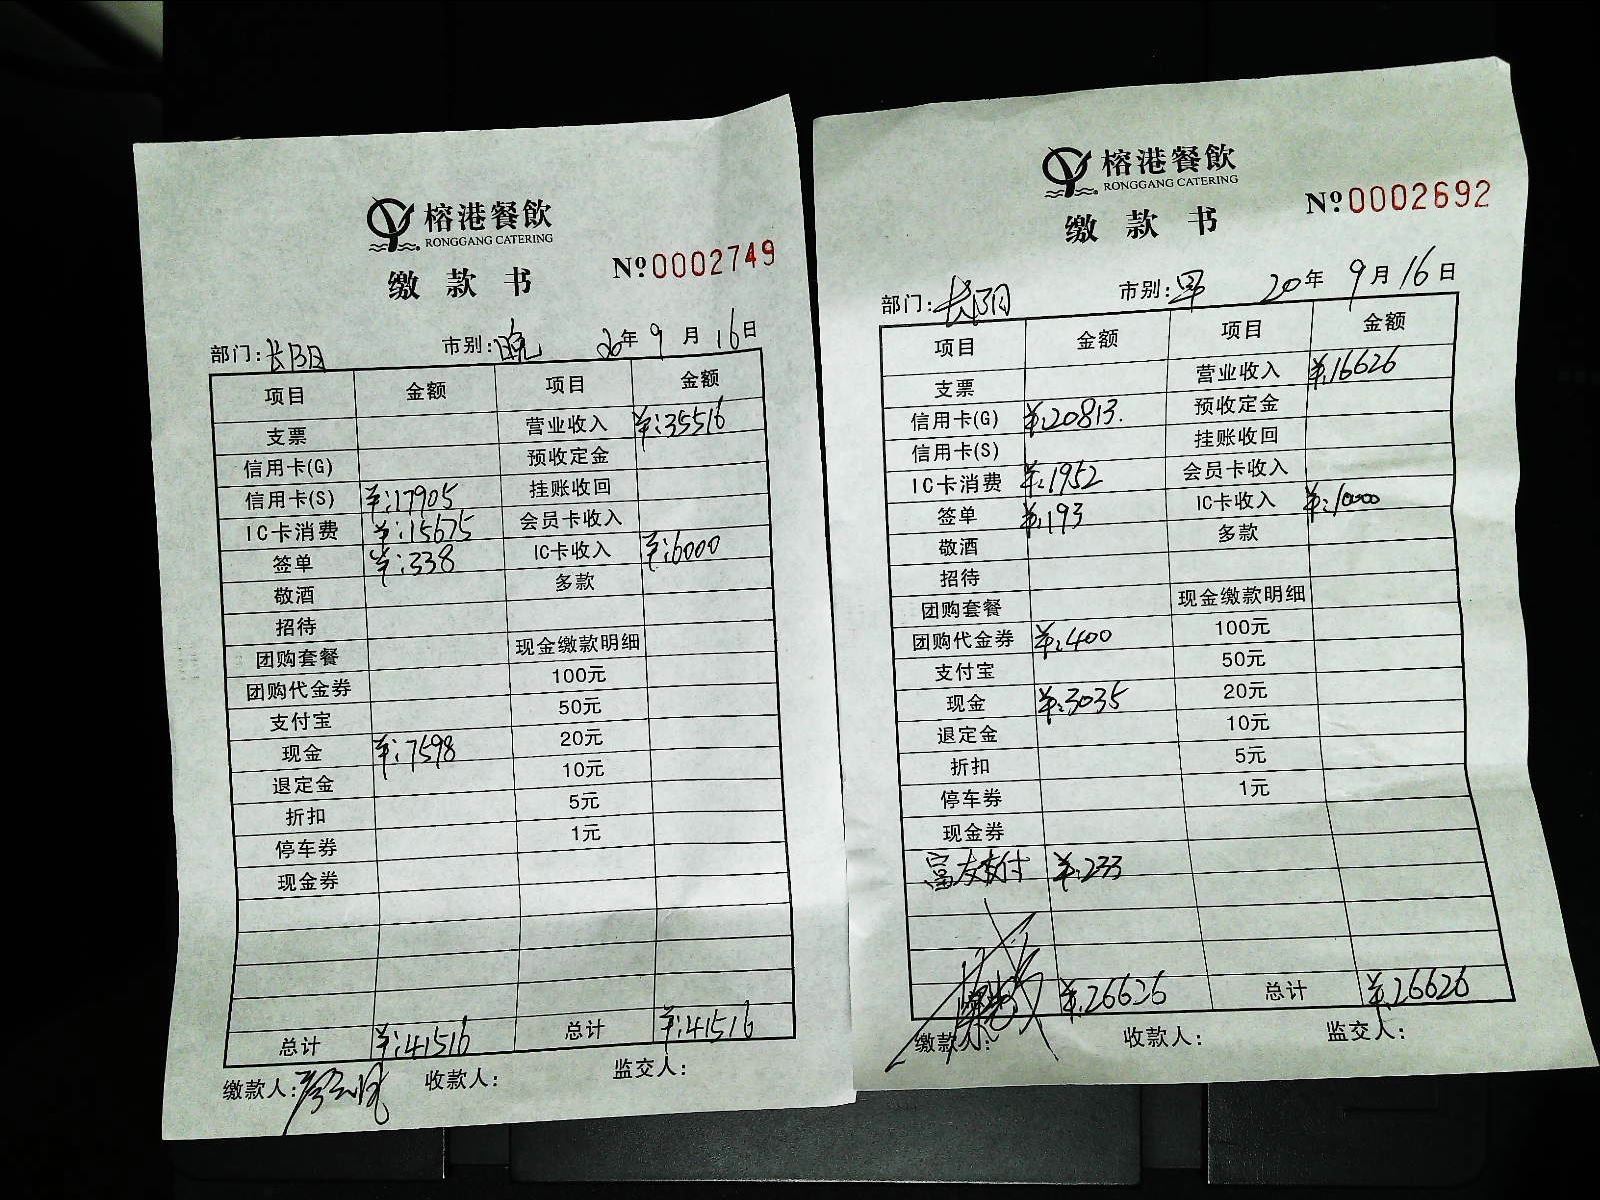 榕港餐飲
RONGGANG CATERING
缴款书
№0002749
部门:长阳 市别:晚 20年9月16日
项目 金额 项目 金额
支票 营业收入 ¥:35516
信用卡(G) 预收定金
信用卡(S) ¥:17905 挂账收回
IC卡消费 ¥:15675 会员卡收入
签单 ¥:338 IC卡收入 ¥:6000
敬酒 多款
招待
团购套餐 现金缴款明细
团购代金券 100元
支付宝 50元
现金 ¥:7598 20元
退定金 10元
折扣 5元
停车券 1元
现金券
总计 ¥:41516 总计 ¥:41516
缴款人: 收款人: 监交人:
榕港餐飲
RONGGANG CATERING
缴款书
№0002692
部门:长阳 市别:早 20年9月16日
项目 金额 项目 金额
支票 营业收入 ¥:16626
信用卡(G) ¥:20813. 预收定金
信用卡(S) 挂账收回
IC卡消费 ¥:1952 会员卡收入
签单 ¥:193 IC卡收入 ¥:10000
敬酒 多款
招待
团购套餐 现金缴款明细
团购代金券 ¥:400 100元
支付宝 50元
现金 ¥:3035 20元
退定金 10元
折扣 5元
停车券 1元
现金券
富友支付 ¥:233
¥:26626 总计 ¥:26626
缴款人: 收款人: 监交人: